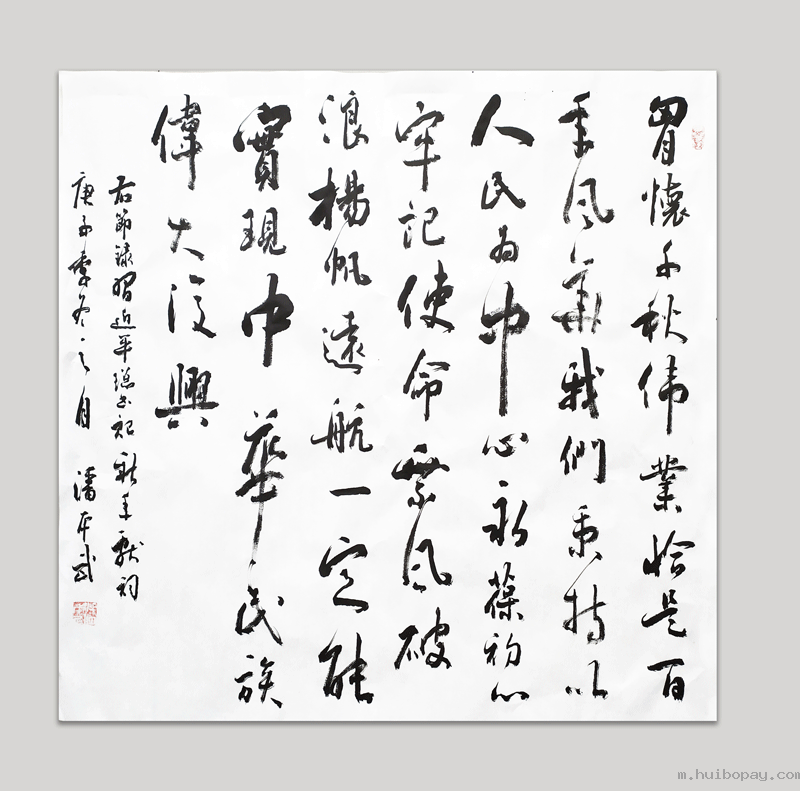 胷懷千秋伟業恰是百
年风華我們秉持以
人民为中心永葆初心
牢記使命乘风破
浪揚帆遠航一定能
實現中華民族
偉大復興
右節録習近平總书記新年獻詞
庚子季冬之月 潘武
m.huibopay.com